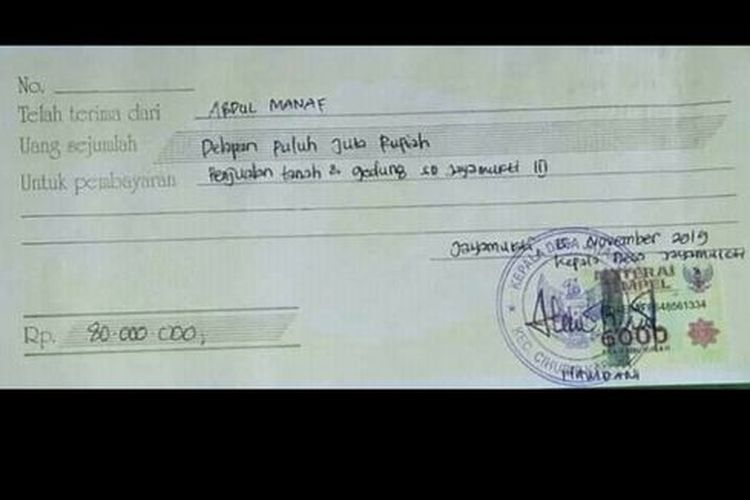 No.
Telah terima dari ABDUL MANAF
Uang sejumlah Delapan Puluh Juta Rupiah
Untuk pembayaran Penjualan tanah & gedung SD Jayamukti III
Jayamukti, November 2019
Kepala Desa Jayamukti
KEPALA DESA
METERAI
TEMPEL
648561334
6000
Rp. 80.000.000,
KEC. CIHUR
HAMDANI